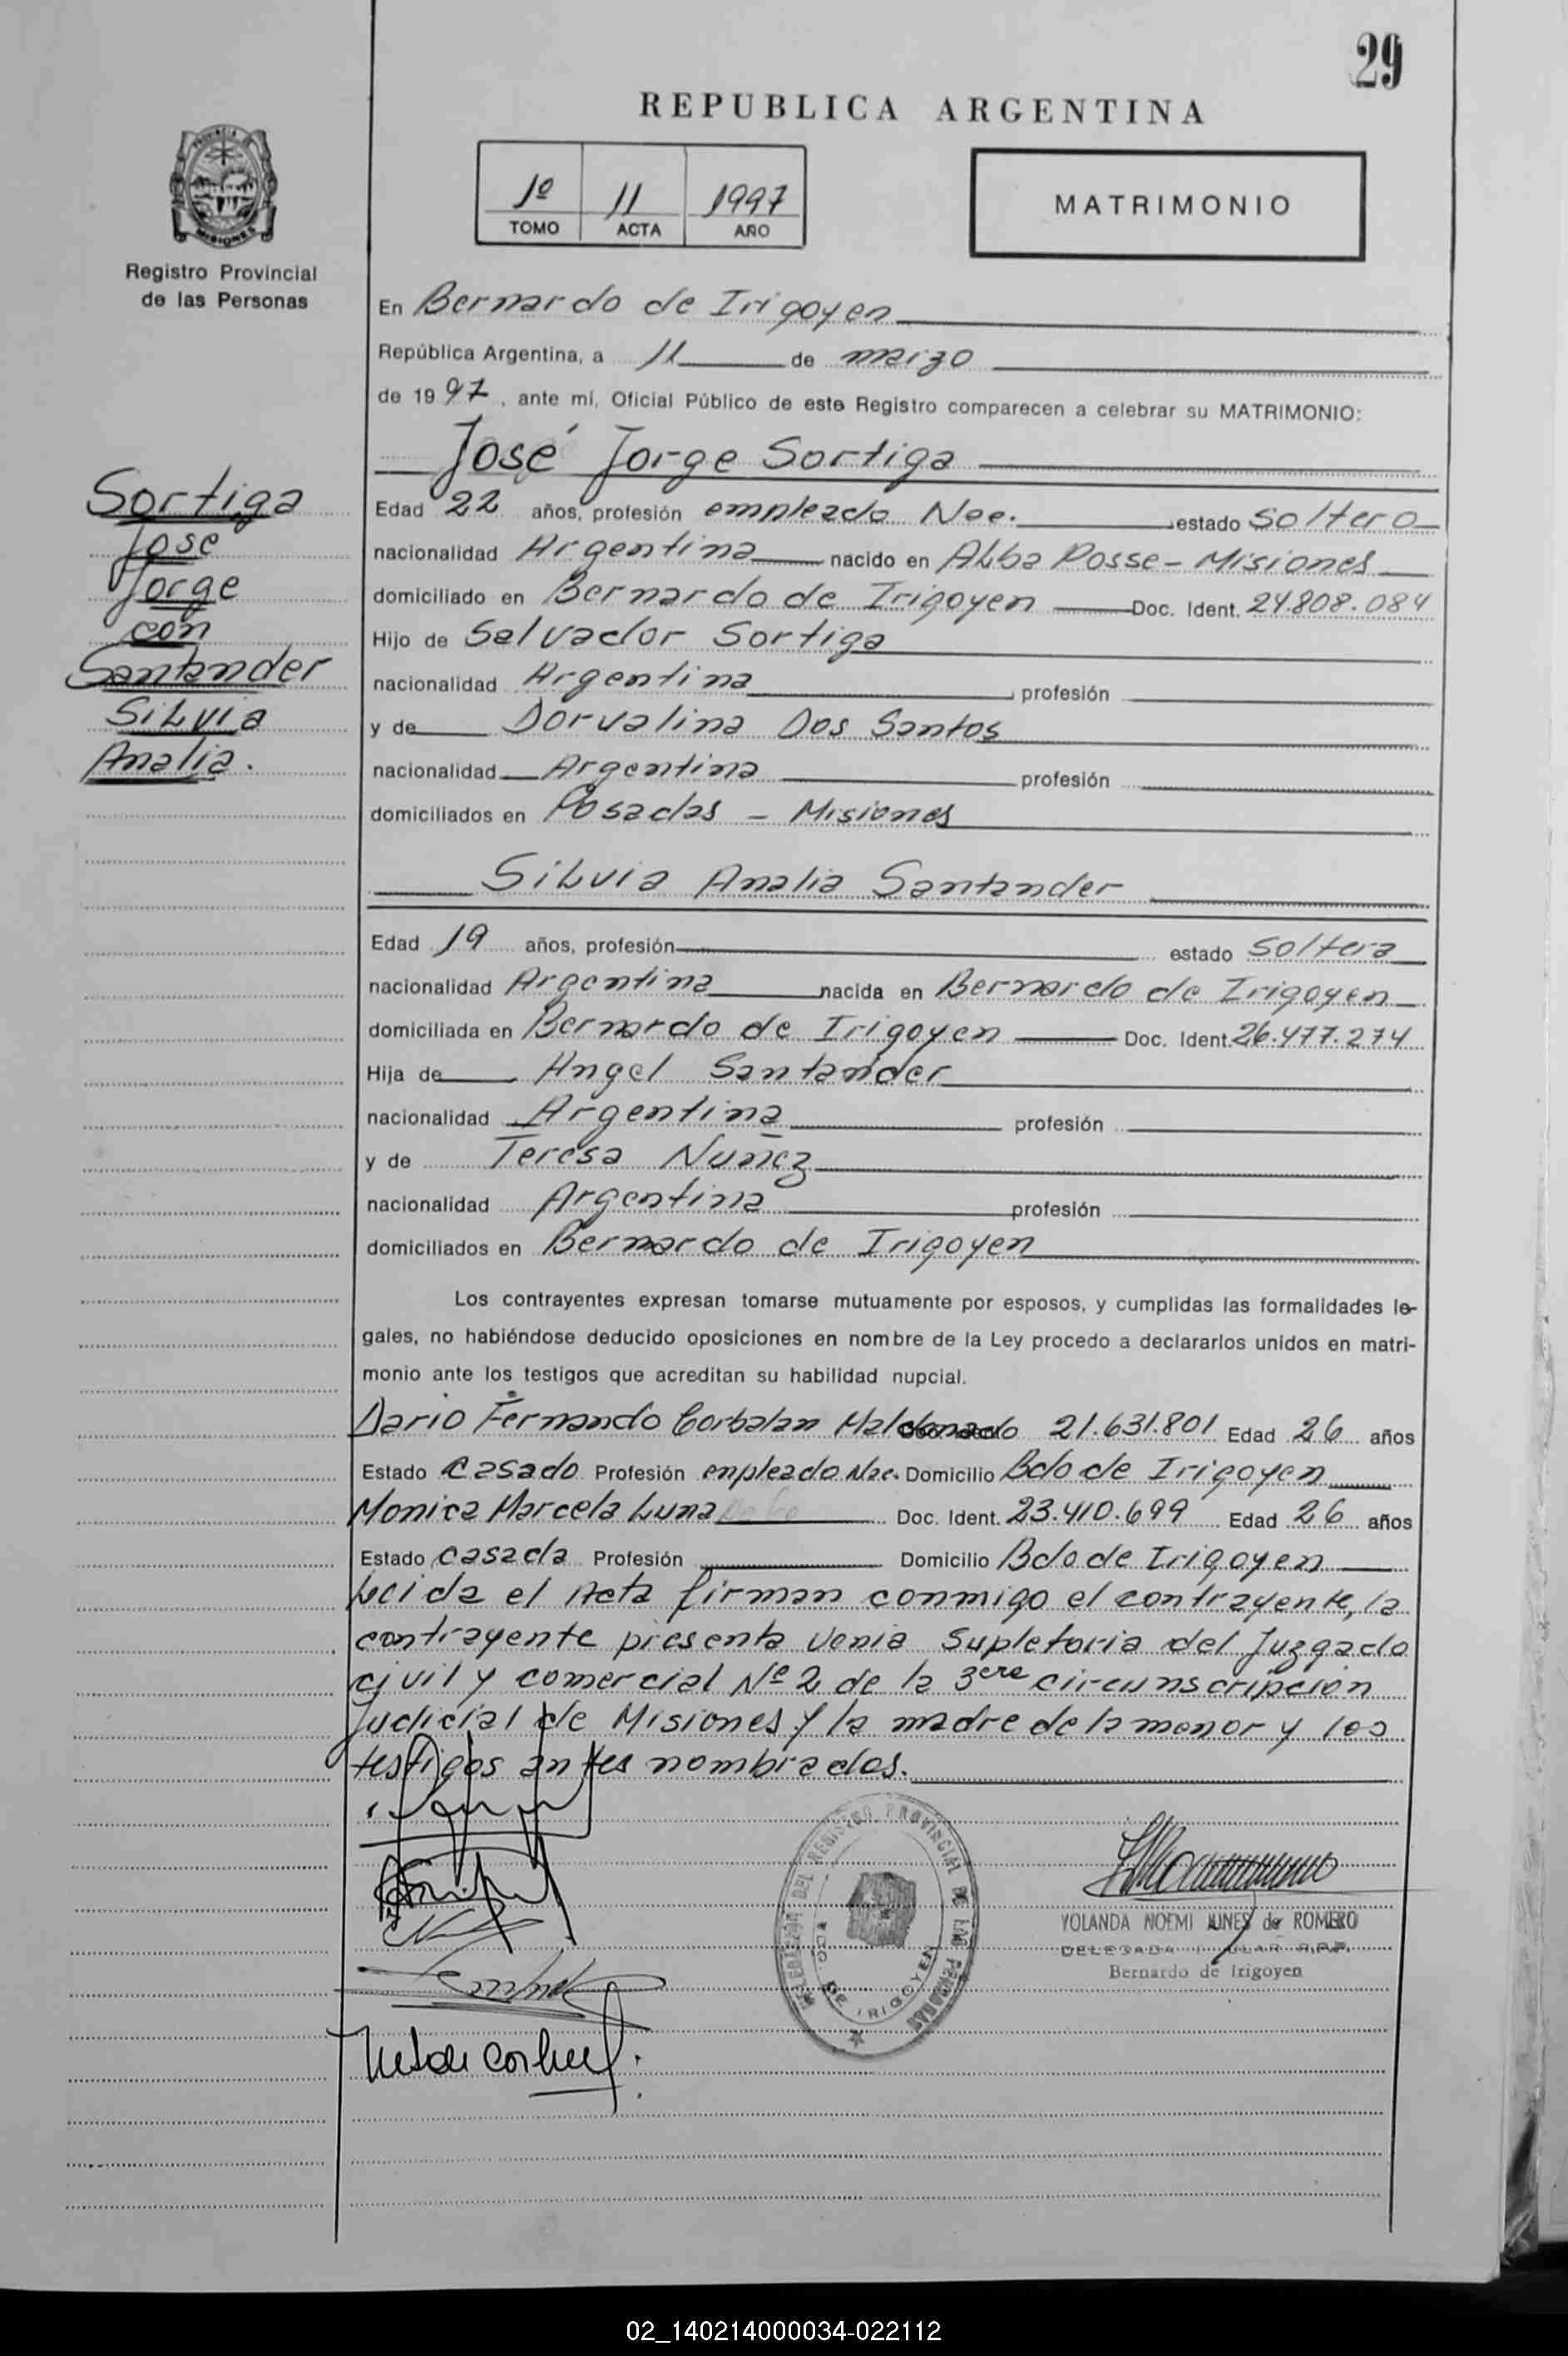 29
REPUBLICA ARGENTINA
1º 11 1997
TOMO ACTA AÑO
MATRIMONIO
PROVINCIA
MISIONES
Registro Provincial
de las Personas
En Bernardo de Irigoyen
República Argentina, a 11 de marzo
de 1997, ante mí, Oficial Público de este Registro comparecen a celebrar su MATRIMONIO:
José Jorge Sortiga
Sortiga
José
Jorge
con
Santander
Silvia
Analia.
Edad 22 años, profesión empleado Nac. estado soltero
nacionalidad Argentina nacido en Alba Posse - Misiones
domiciliado en Bernardo de Irigoyen Doc. Ident. 24.808.084
Hijo de Salvador Sortiga
nacionalidad Argentina profesión
y de Dorvalina Dos Santos
nacionalidad Argentina profesión
domiciliados en Posadas - Misiones
Silvia Analia Santander
Edad 19 años, profesión estado soltera
nacionalidad Argentina nacida en Bernardo de Irigoyen
domiciliada en Bernardo de Irigoyen Doc. Ident. 26.477.274
Hija de Angel Santander
nacionalidad Argentina profesión
y de Teresa Nuñez
nacionalidad Argentina profesión
domiciliados en Bernardo de Irigoyen
Los contrayentes expresan tomarse mutuamente por esposos, y cumplidas las formalidades le-
gales, no habiéndose deducido oposiciones en nombre de la Ley procedo a declararlos unidos en matri-
monio ante los testigos que acreditan su habilidad nupcial.
Dario Fernando Corbalan Maldonado 21.631.801 Edad 26 años
Estado casado Profesión empleado Nac. Domicilio Bdo de Irigoyen
Monica Marcela Luna Doc. Ident. 23.410.699 Edad 26 años
Estado casada Profesión Domicilio Bdo de Irigoyen
Leida el Acta firman conmigo el contrayente, la
contrayente presenta venia supletoria del Juzgado
civil y comercial Nº 2 de la 3era circunscripción
Judicial de Misiones y la madre de la menor y los
testigos antes nombrados.
DELEGACION DEL REGISTRO PROVINCIAL DE LAS PERSONAS
BDO. DE IRIGOYEN
YOLANDA NOEMI NUNES de ROMERO
DELEGADA TITULAR R.P.P.
Bernardo de Irigoyen
02_140214000034-022112